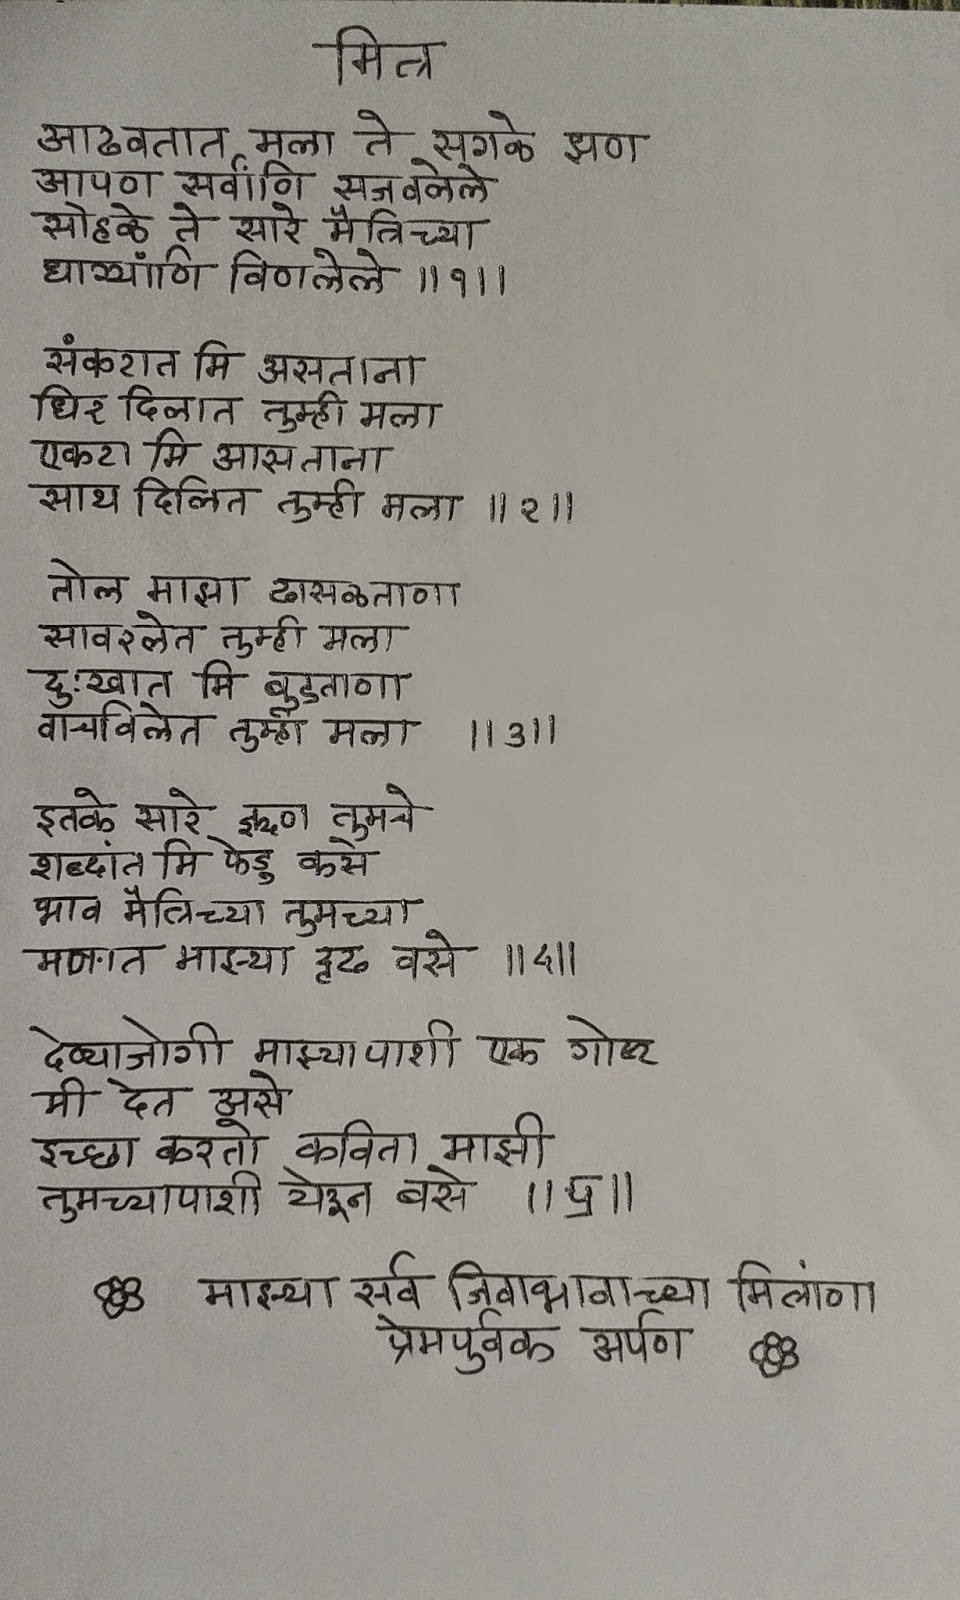 मित्र
आठवतात मला ते सगळे क्षण
आपण सर्वांणि सजवलेले
सोहळे ते सारे मैत्रिच्या
धाग्यांणि विणलेले ॥१॥
संकटात मि असताना
धिर दिलात तुम्ही मला
एकटा मि आसताना
साथ दिलित तुम्ही मला ॥२॥
तोल माझा ढासळताणा
सावरलेत तुम्ही मला
दुःखात मि बुडताणा
वाचविलेत तुम्ही मला ॥३॥
इतके सारे ऋण तुमचे
शब्दांत मि फेडु कसे
भाव मैत्रिच्या तुमच्या
मणात माझ्या दृढ वसे ॥४॥
देण्याजोगी माझ्यापाशी एक गोष्ट
मी देत असे
इच्छा करतो कविता माझी
तुमच्यापाशी येऊन बसे ॥५॥
माझ्या सर्व जिवाभावाच्या मित्रांणा
प्रेमपुर्वक अर्पण